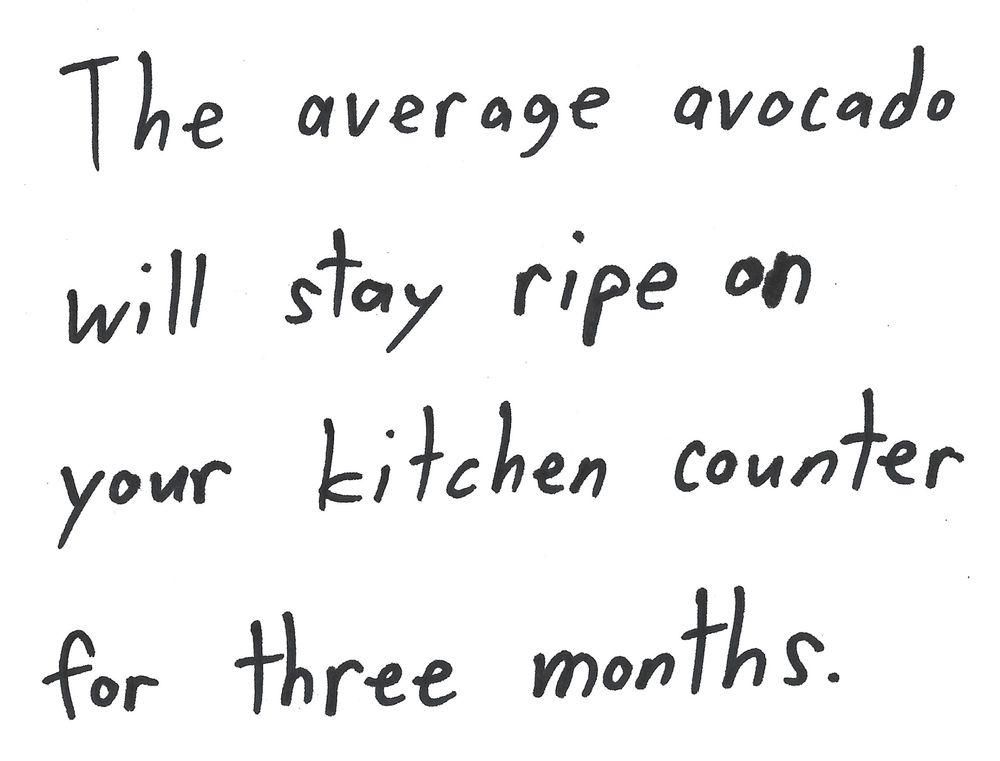 The average avocado
will stay ripe on
your kitchen counter
for three months.